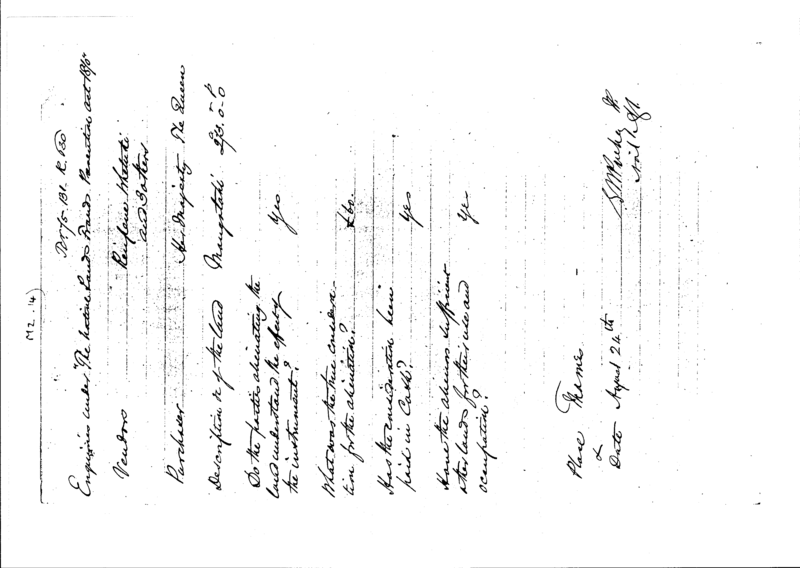 M2. 14)
Enquiries under "The Native Lands Frauds Prevention Act 18
Vendors
and others
Purchaser Her Majesty The Queen
Description &c of the land Maungataki 93. 0. 0
Do the parties alienating the
land understand the effect of
the instrument? Yes
What was the true considera-
tion for the alienation? £60.
Has the consideration been
paid in Cash? Yes
Have the aliens sufficient
other lands for their use and
occupation? Yes
Place Thames
&
Date August 24th